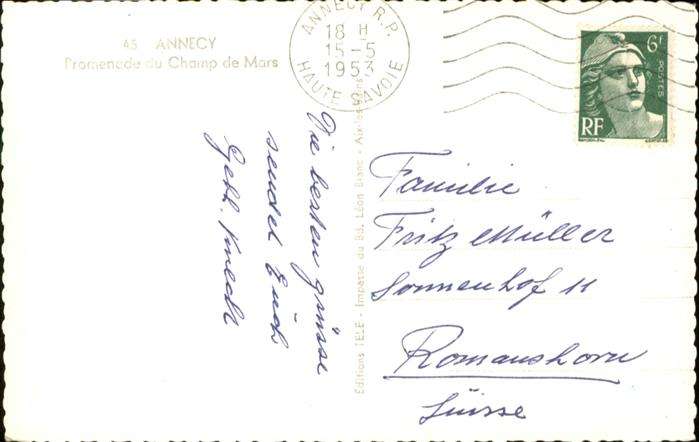 45 ANNECY
Promenade du Champ de Mars
ANNECY R.P.
18 H
15-5
1953
HAUTE SAVOIE
6F
POSTES
RF
Die besten grüsse
sendet Euch
Gebl. Knecht
Editions TELE - Impasse du Bd. Léon Blanc - Aix-les-Bains
Familie
Fritz Müller
Sonnenhof 11
Romanshorn
Suisse